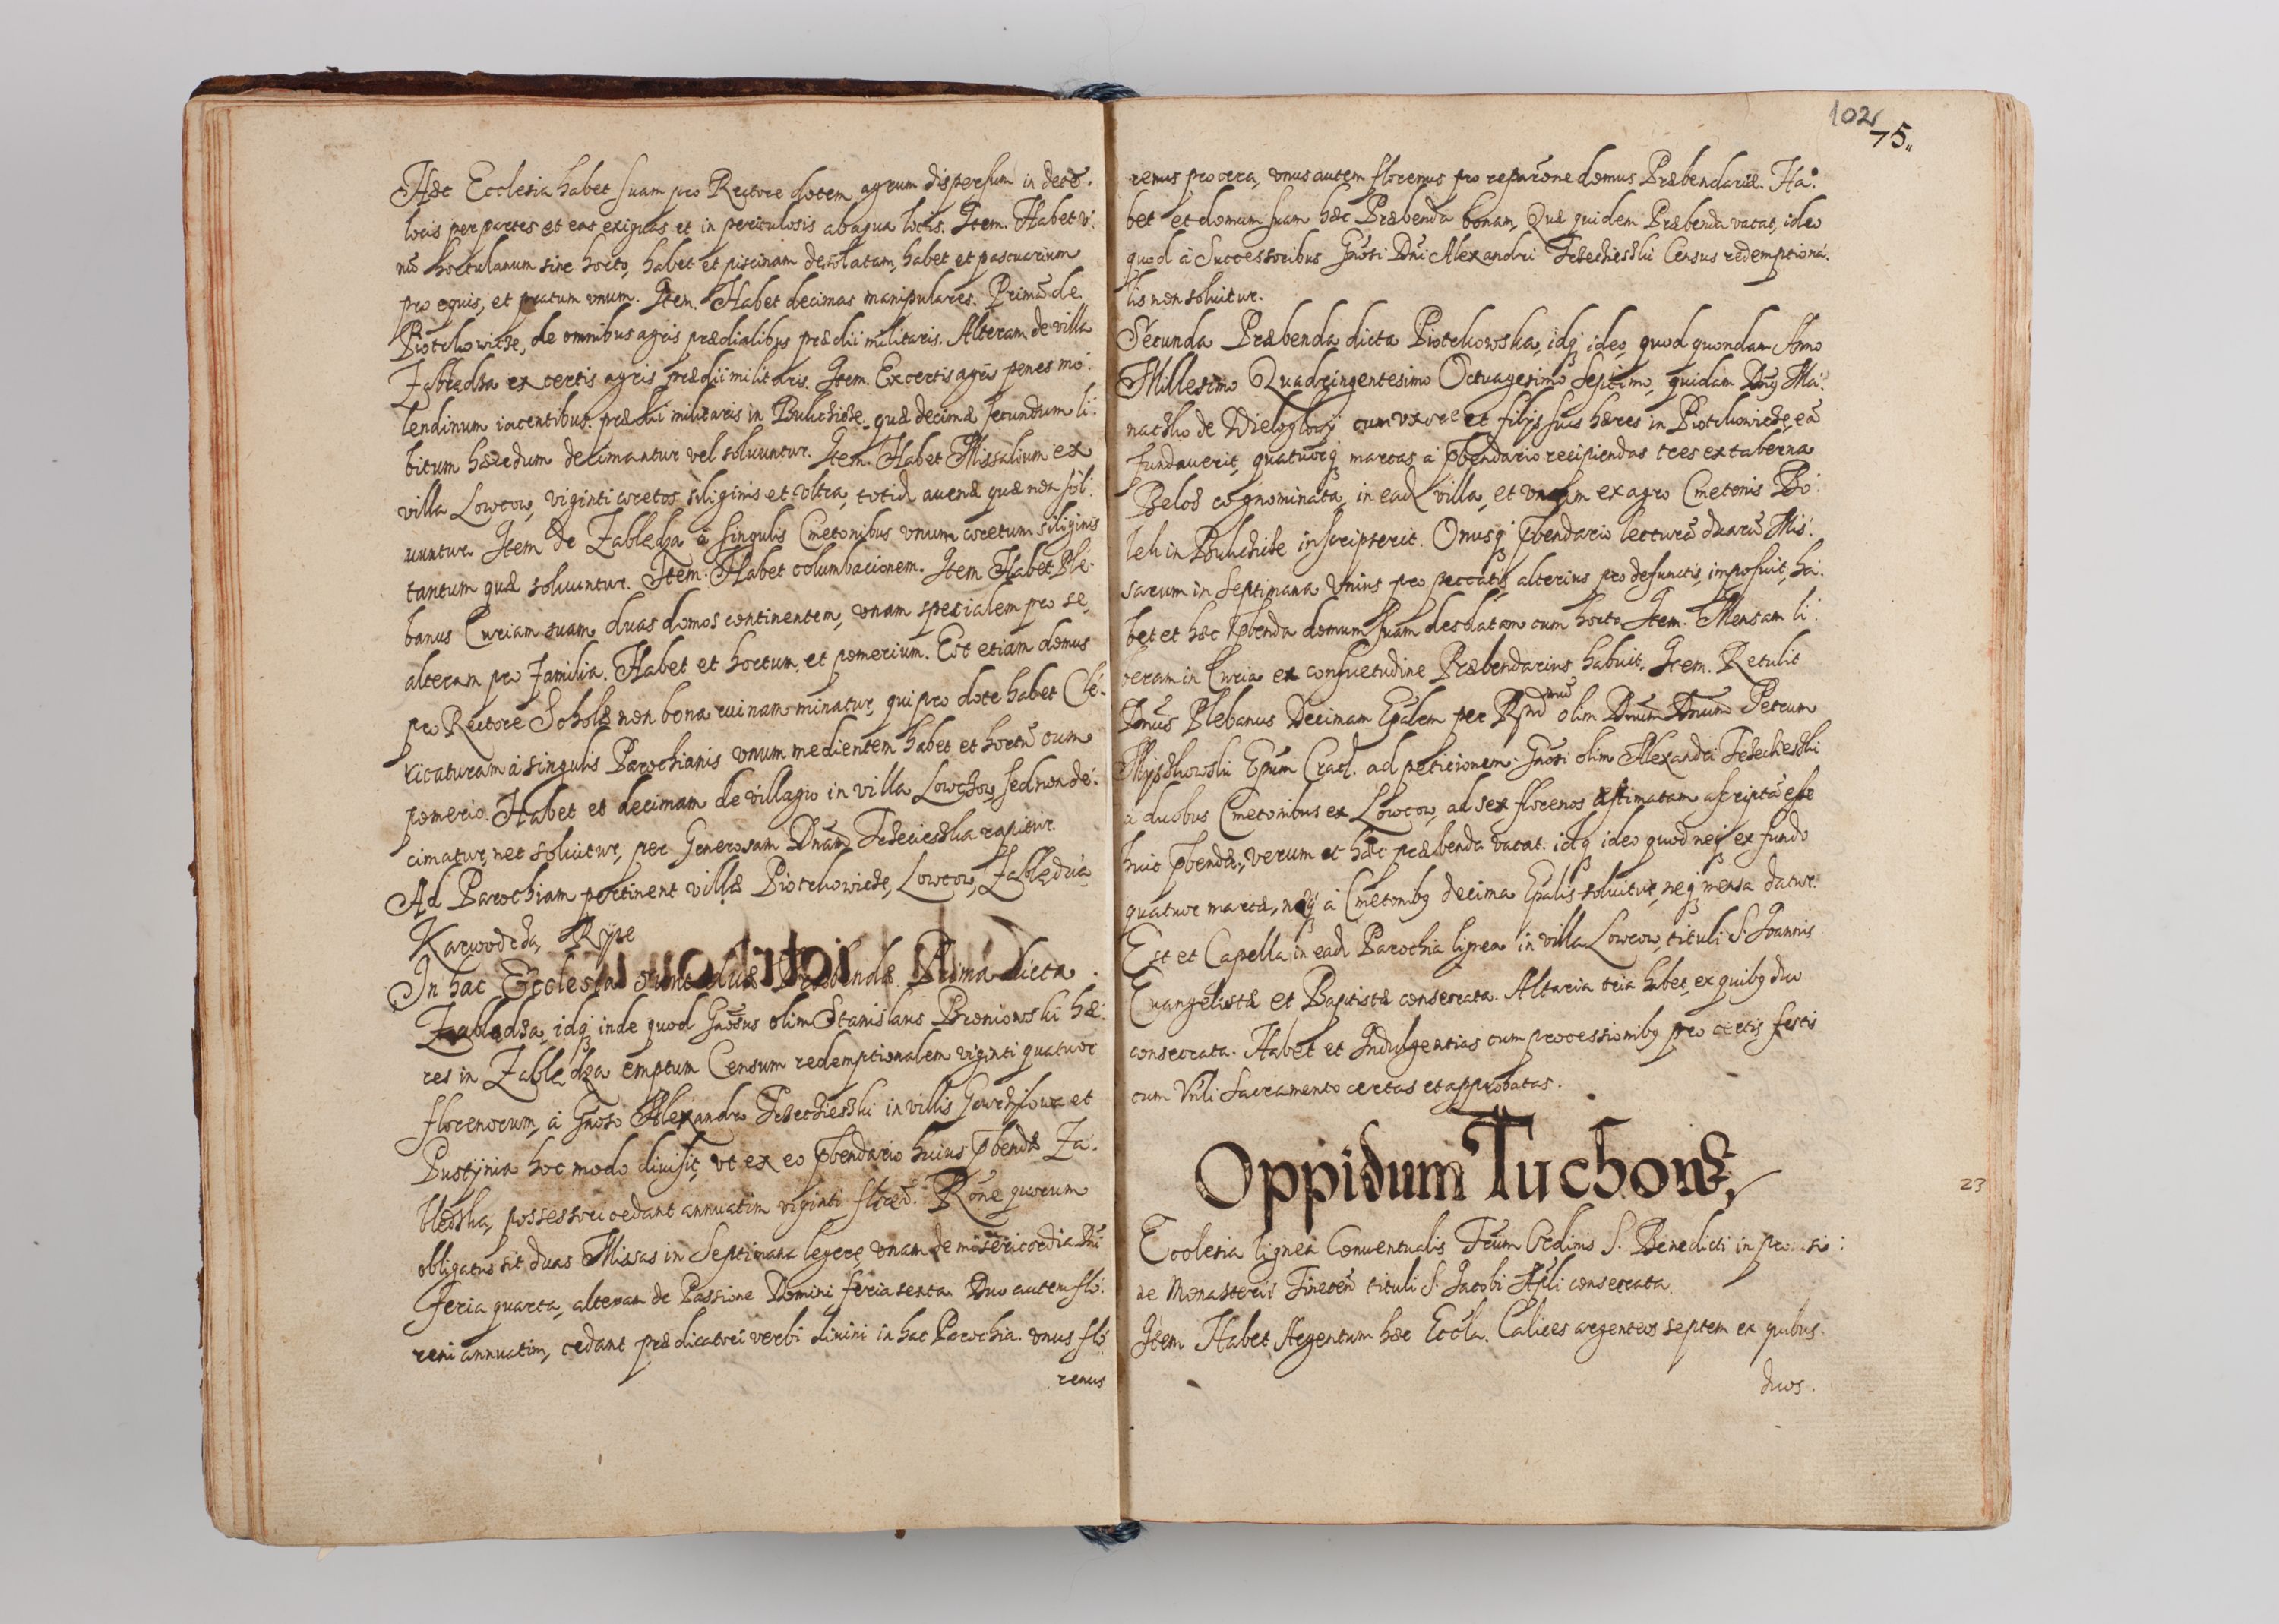 Hæc Ecclesia habet suam pro Rectore dotem agrum dispersum in decē.
locis per partes et eas exiguas et in periculosis ab aqua locis. Item. Habet v:
nū hortulanum sine horto, habet et piscinam desolatam, habet et pascuarium
pro equis, et pratum vnum. Item. Habet decimas manipulares. Primā de
Piotrkowicze, de omnibus agris prædialibus prædii militaris. Alteram de villa
Zabłędza ex certis agris prædii militaris. Item. Ex certis agris penes mo:
lendinum iacentibus prædii militaris in Buchcicze. quæ decimæ secundum li:
bitum hæredum decimantur vel soluuntur. Item. Habet Missalium ex
villa Lowczow, viginti coretos siliginis et vltra, totid auenæ quæ non sol:
uuntur. Item de Zabłędza à singulis Cmetonibus vnum coretum siliginis
tantum quæ soluuntur. Item. Habet columbacionem. Item Habet Ple:
banus Curiam suam duas domos continentem, vnam specialem pro se,
alteram pro familia. Habet et hortum et pomerium. Est etiam domus
pro Rectore Scholæ non bona ruinam minatur, qui pro dote habet Cle:
ricaturam à singulis Parochianis vnum medientem habet et hortū cum
pomerio. Habet et decimam de villagio in villa Lowczow, sed non de:
cimatur, nec soluitur, per Generosam Dnām Trzecieska rapitur.
Ad Parochiam pertinent villæ Piotrkowicze, Lowcow, Zabłędza
Karwodrza, Ryie
In hac Ecclesia sunt duæ Præbendæ. Prima dicta
Zabłędza, idq; inde quod Gnōsus olim Stanislaus Broniowski hæ:
res in Zabłędza emptum Censum redemptionalem viginti quatuor
florenorum, à Gnōso Alexandro Trzecieski in villis et
Pustynia hoc modo diuisit, vt ex eo pbendario huius pbendæ Za:
błedska, possessori cedant annuatim viginti floren. Rōne quorum
obligatus sit duas Missas in Septimana legere, vnam de misericordia Dni
Feria quarta, alteram de Passione Domini feria sexta. Duo autem flo:
reni annuatim, cedant prædicatori verbi diuini in hac Parochia. vnus flo:
renus
102
75.
renus pro cera, vnus autem florenus pro reparōne domus Præbendariæ. Ha:
bet et domum suam hæc Præbenda bonam, Quæ quidem Præbenda vacat, ideo
quod à Successoribus Gnōsi Dni Alexandri Trzecieski Census redemptiona:
lis non soluitur.
Secunda Præbenda dicta Piotrkowska, idq; ideo, quod quondam Anno
Millesimo Quadringentesimo Octuagesimo Septimo, quidam Dnūs Ma:
naczko de Wielogłowÿ cum vxore et filÿs suis hæres in Piotrkowicze, eā
fundauerit, quatuorq; marcas a pbendario recipiendas tres ex taberna
cognominata, in ead villa, et vnam ex agro Cmetonis Bo:
lek in Buchcicze inscripserit. Onusq; pbendario lecturā duarū Mis:
sarum in Septimana Vnius pro peccatis, alterius pro defunctis, imposuit, ha:
bet et hæc pbenda domum suam desolatam cum horto. Item. Mensam li:
beram in Curia ex consuetudine Præbendarius habuit. Item. Retulit
Dnūs Plebanus Decimam Epālem per Rndmū olim Dnūm Dnūm Petrum
Mÿszkowski Epūm Crac. ad peticionem. Gnōsi olim Alexandri Trzecieski
à duobus Cmetonibus ex Lowcow, ad sex florenos æstimatam ascriptā esse
huic pbendæ, verum et hæc præbenda vacat. idq; ideo quod neq; ex fundo
quatuor marcæ, neq; à Cmetonibq decima Epālis soluitur, neq; mensa datur.
Est et Capella in ead Parochia lignea in villa Lowcow, tituli S. Joannis
Euangelistæ et Baptistæ consecrata. Altaria tria habet, ex quibq duo
consecrata. Habet et Indulgentias cum processionibq pro certis festis
cum Vnli Sacramento certas et approbatas.
Oppidum Tuchow,
23
Ecclesia lignea Conuentualis Frūm Ordinis S. Benedicti in
ne Monasterii Tinecen tituli S. Jacobi Apli consecrata.
Item Habet Argentum hæc Eccla. Calices argenteos septem ex quibus.
duos.